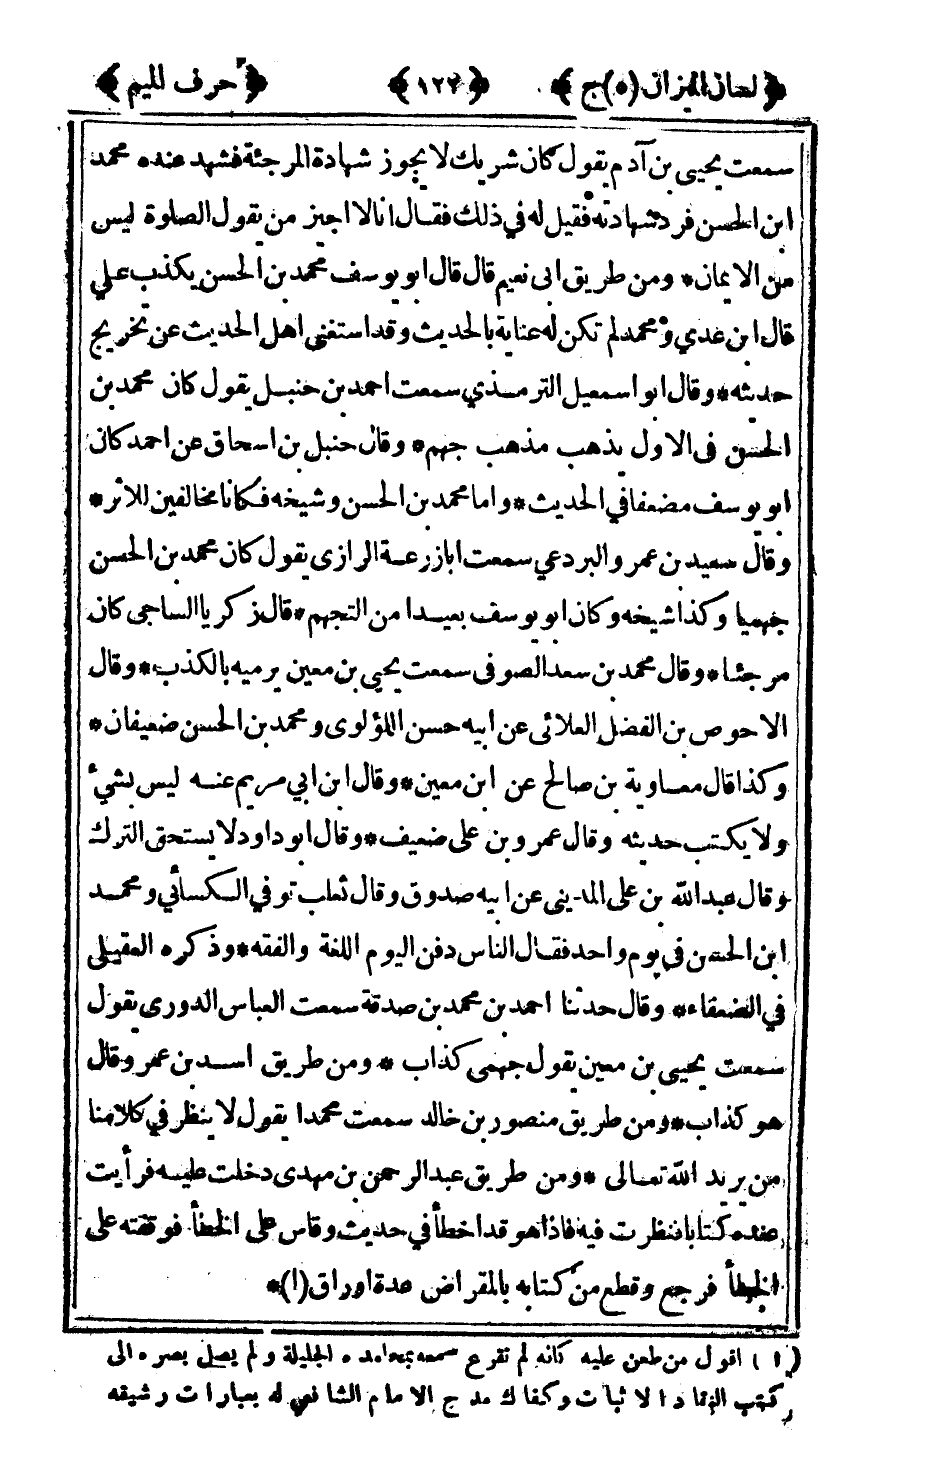 ﴿ لسان الميزان (٥) ج ﴾ ﴿ ١٢٢ ﴾ ﴿ حرف الميم ﴾
سمعت يحيى بن آدم يقول كان شريك لا يجوز شهادة المرجئة فشهد عنده محمد
ابن الحسن فرد شهادته فقيل له في ذلك فقال انا لا اجيز من يقول الصلوة ليس
من الايمان * ومن طريق ابى نعيم قال قال ابو يوسف محمد بن الحسن يكذب علي
قال ابن عدي ومحمد لم تكن له عناية بالحديث وقد استغنى اهل الحديث عن تخريج
حديثه * وقال ابو اسمعيل الترمذي سمعت احمد بن حنبل يقول كان محمد بن
الحسن فى الاول يذهب مذهب جهم * وقال حنبل بن اسحاق عن احمد كان
ابو يوسف مضعفا في الحديث * واما محمد بن الحسن وشيخه فكانا مخالفين للاثر *
وقال سعيد بن عمرو البردعي سمعت ابا زرعة الرازى يقول كان محمد بن الحسن
جهميا وكذا شيخه وكان ابو يوسف بعيدا من التجهم * قال زكريا الساجى كان
مرجئا * وقال محمد بن سعد الصوفى سمعت يحيى بن معين يرميه بالكذب * وقال
الاحوص بن الفضل العلائى عن ابيه حسن اللؤلوى ومحمد بن الحسن ضعيفان *
وكذا قال معاوية بن صالح عن ابن معين * وقال ابن ابي مريم عنه ليس بشيء
ولا يكتب حديثه وقال عمرو بن على ضعيف * وقال ابو داود لا يستحق الترك
وقال عبد الله بن على المدينى عن ابيه صدوق وقال ثعلب توفي الكسائي ومحمد
ابن الحسن في يوم واحد فقال الناس دفن اليوم اللغة والفقه * وذكره العقيلى
في الضعفاء * وقال حدثنا احمد بن محمد بن صدقة سمعت العباس الدورى يقول
سمعت يحيى بن معين يقول جهمى كذاب * ومن طريق اسد بن عمر وقال
هو كذاب * ومن طريق منصور بن خالد سمعت محمدا يقول لا ينظر في كلامنا
من يريد الله تعالى * ومن طريق عبد الرحمن بن مهدى دخلت عليه فرأيت
عنده كتابا فنظرت فيه فاذا هو قد اخطأ في حديث وقاس على الخطأ فوقفته على
الخطأ فرجع وقطع من كتابه بالمقراض عدة اوراق (١) *
(١) اقول من طعن عليه كانه لم تقرع سمعه محامده الجليلة ولم يصل بصره الى
كتب النقاد الاثبات وكفاك مدح الامام الشافعي له بعبارات رشيقه